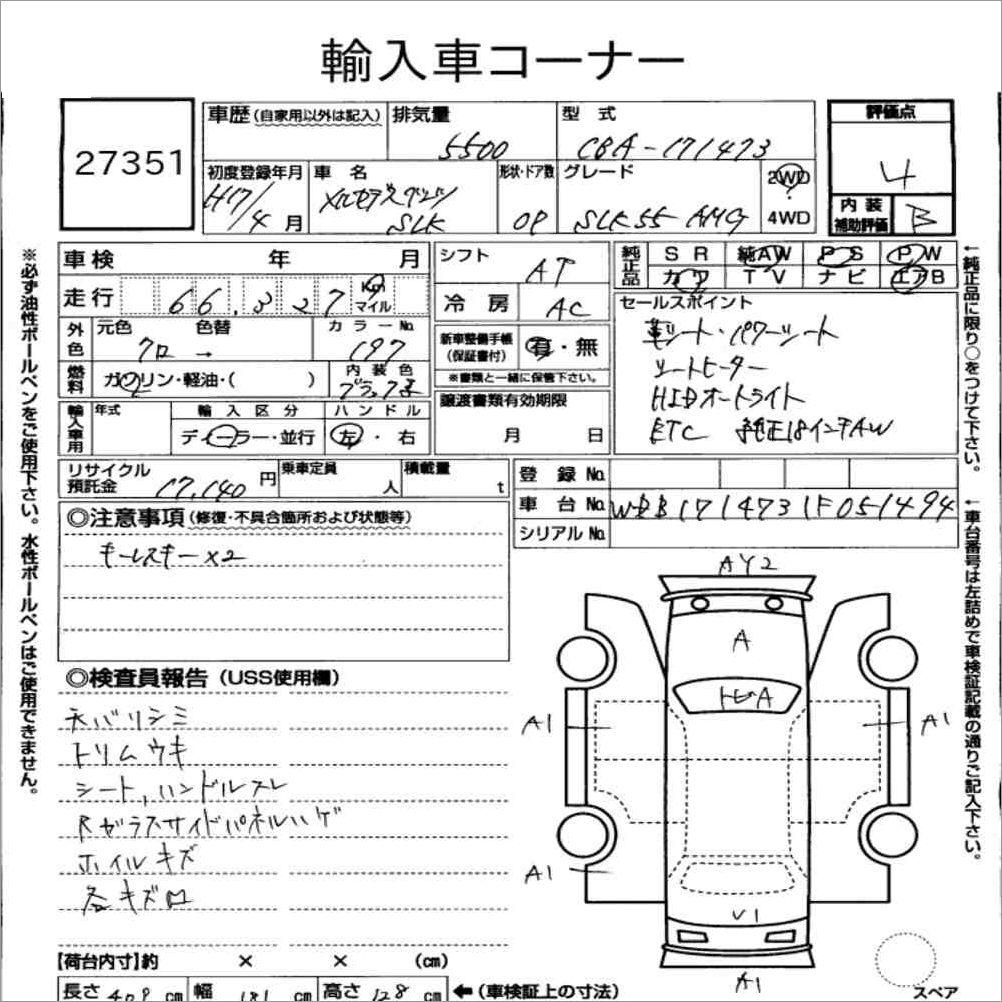 輸入車コーナー
27351
車歴(自家用以外は記入)
排気量
5500
型式
CBA-171473
評価点
4
初度登録年月
H17/4月
車名
メルセデスベンツ
SLK
形状・ドア数
OP
グレード
SLK55 AMG
2WD
4WD
内装
補助評価
B
車検 年 月
走行 66,327 Km マイル
シフト
AT
冷房
AC
純正品
SR 純AW PS PW
カワ TV ナビ エアB
外色
元色 色替
クロ →
カラーNo.
197
燃料
ガソリン・軽油・( )
内装色
新車整備手帳
(保証書付)
有・無
※書類と一緒に保管下さい。
セールスポイント
革シート・パワーシート
シートヒーター
HIDオートライト
ETC 純正18インチAW
輸入車用
年式
輸入区分
ディーラー・並行
ハンドル
左・右
譲渡書類有効期限
月 日
リサイクル
預託金
17,140円
乗車定員
人
積載量
t
登録No.
車台No.
WDB171473 1F051494
シリアルNo.
◎注意事項(修復・不具合箇所および状態等)
キーレスキー×2
◎検査員報告(USS使用欄)
ネバリシミ
トリムウキ
シート,ハンドルスレ
Rガラスサイドパネルハゲ
ホイルキズ
各キズ
AY2
A
トビA
A1
A1
A1
U1
A1
スペア
【荷台内寸】約 × × (cm)
長さ 409 cm 幅 181 cm 高さ 128 cm ←(車検証上の寸法)
※必ず油性ボールペンをご使用下さい。水性ボールペンはご使用できません。
←純正品に限り○をつけて下さい。
←車台番号は左詰めで車検証記載の通りご記入下さい。